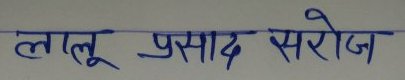 लालू प्रसाद सरोज